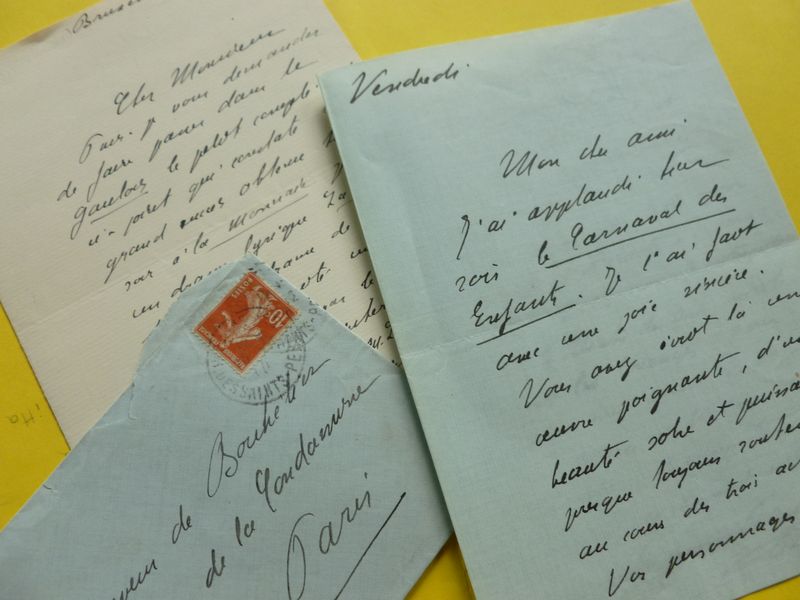 Cher Monsieur
Puis-je vous demander
de faire passer dans le
Gaulois le petit
ci-joint qui constate
grand succès obtenu
soir à la Monnaie
un drame lyrique
10c
POSTES
DES SAINTS-PERES
de Bouhélier
de la Condamine
Paris
Vendredi
Mon cher ami
J'ai applaudi hier
soir le Carnaval des
Enfants. Je l'ai fait
avec une joie sincère.
Vous avez écrit là une
œuvre poignante, d'un
beauté sobre et puissan
presque toujours souten
au cours des trois ac
Vos personnages